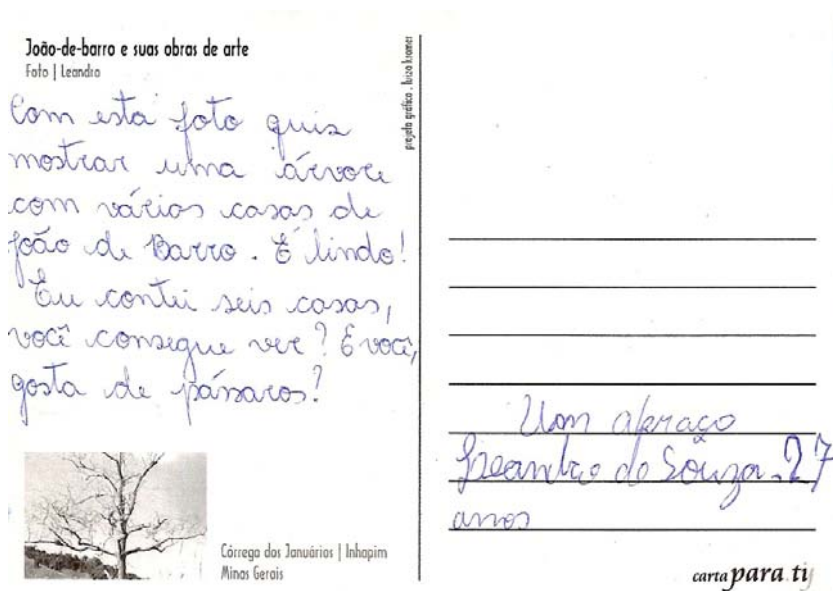 João-de-barro e suas obras de arte
Foto | Leandro
projeto gráfico . luiza kramer
Com esta foto quis
mostrar uma árvore
com vários casas de
joão de Barro. É lindo!
Eu contei seis casas,
você consegue ver? E você,
gosta de pássaros?
Córrego dos Januários | Inhapim
Minas Gerais
Um abraço
Leandro de Souza. 27
anos
carta para ti